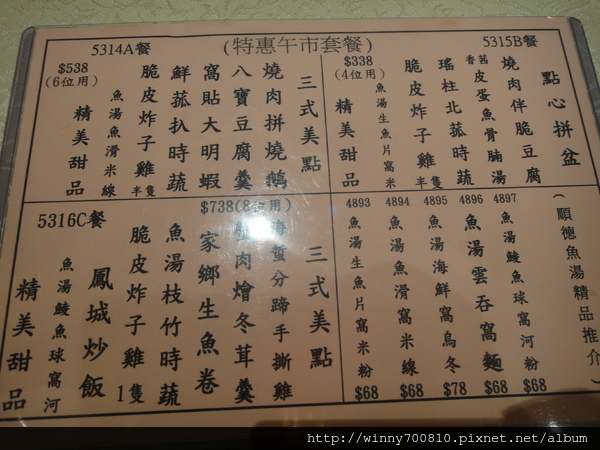 (特惠午市套餐)
5314A餐
$538
(6位用)
三式美點
燒肉拼燒鵝
八寶豆腐羹
窩貼大明蝦
鮮菇扒時蔬
脆皮炸子雞半隻
魚湯魚滑米線
精美甜品
5315B餐
$338
(4位用)
點心拼盆
燒肉伴脆豆腐
香茜皮蛋魚骨腩湯
瑤柱北菇時蔬
脆皮炸子雞半隻
魚湯生魚片窩米
精美甜品
5316C餐
$738(8位用)
三式美點
海蜇分蹄手撕雞
蟹肉燴冬茸羹
家鄉生魚卷
魚湯枝竹時蔬
脆皮炸子雞1隻
鳳城炒飯
魚湯鯪魚球窩河
精美甜品
(順德魚湯精品推介)
4897 魚湯鯪魚球窩河粉 $68
4896 魚湯雲吞窩麵 $68
4895 魚湯海鮮窩烏冬 $78
4894 魚湯魚滑窩米線 $68
4893 魚湯生魚片窩米粉 $68
http://winny700810.pixnet.net/album